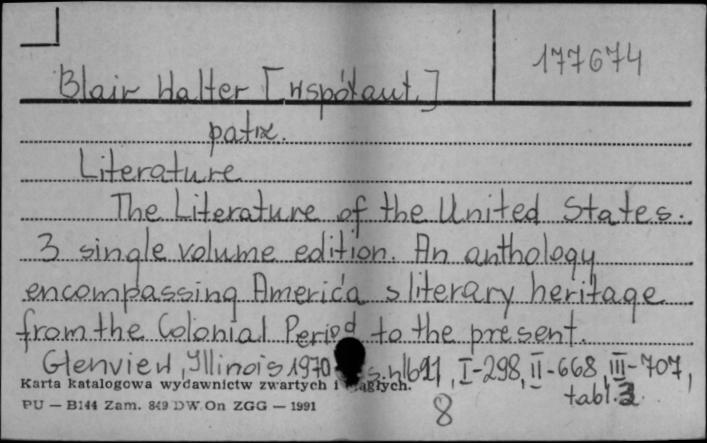 177674
Blair Walter [współaut.]
patrz.
Literature
The Literature of the United States.
3 single volume edition. An anthology
encompassing America's literary heritage
from the Colonial Period to the present.
Glenview, Illinois 1970 s. nlb 21, I-298, II-668, III-707,
tabl. 3
Karta katalogowa wydawnictw zwartych i ciągłych.
PU — B144 Zam. 849 DW.On ZGG — 1991
8